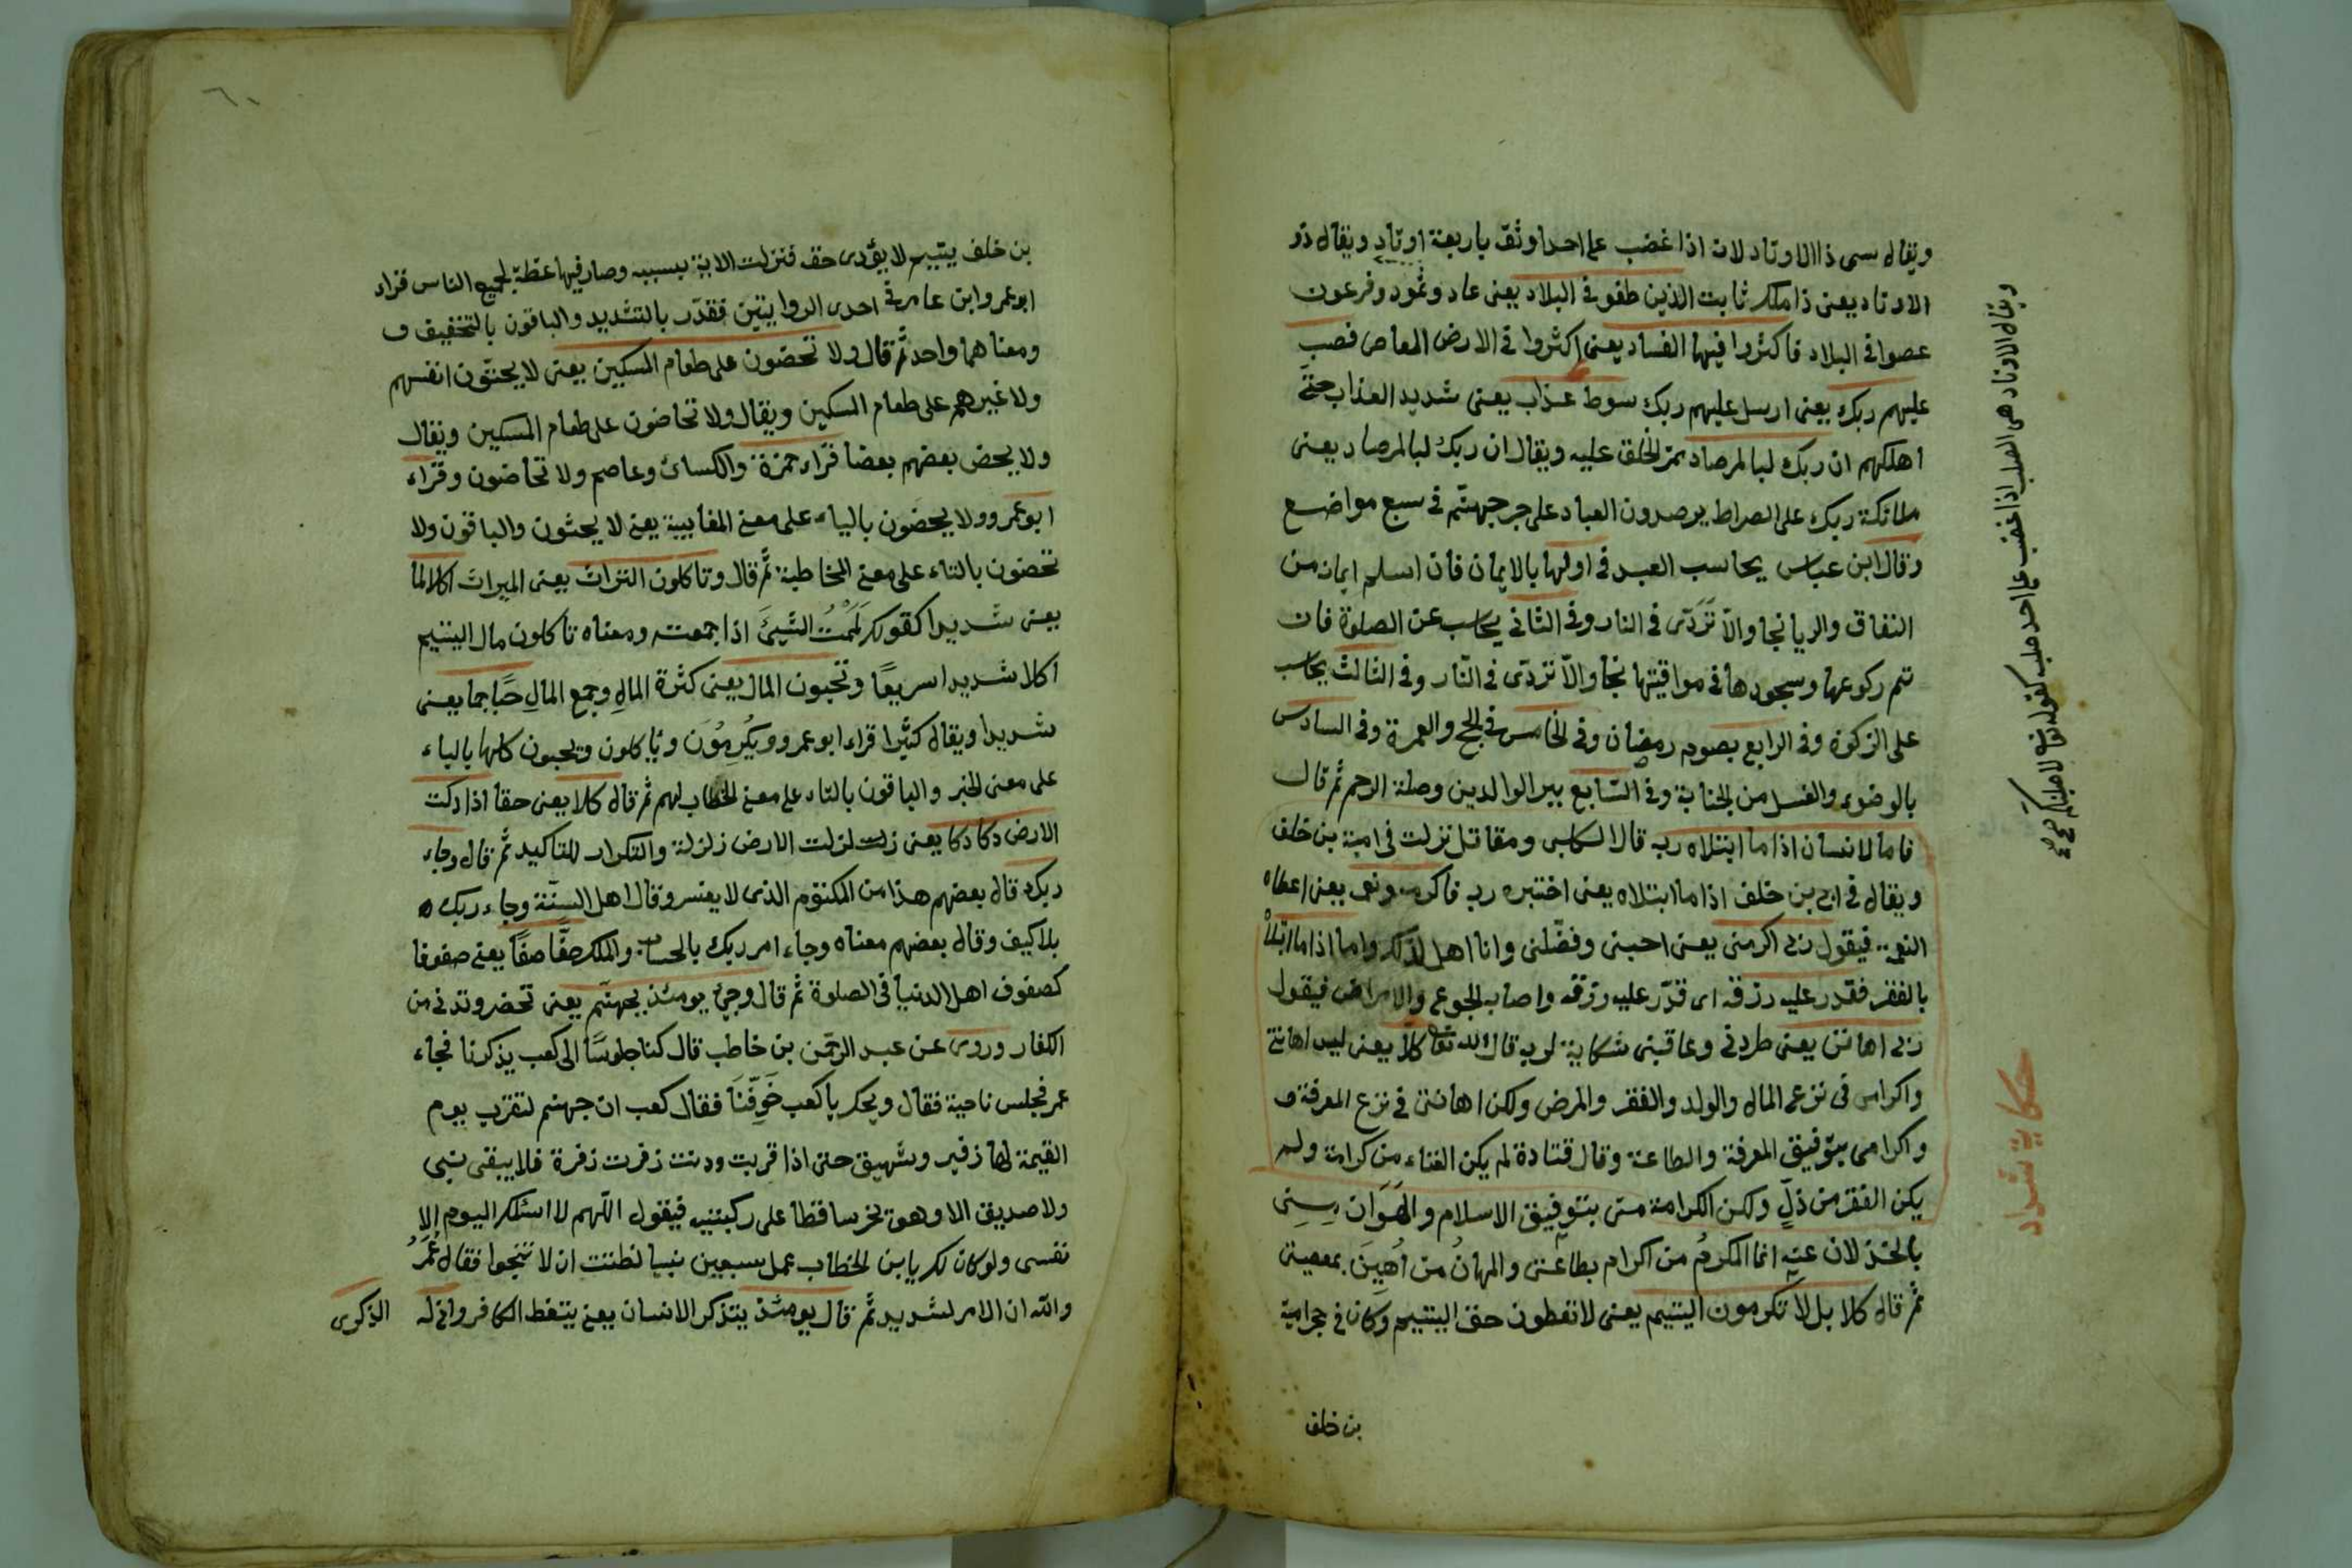 ويقال سمى ذا الاوتاد لانه اذا غضب على احد اوثقه باربعة اوتاد ويقال ذو
الاوتاد يعنى ذا ملك ثابت الذين طغوا فى البلاد يعنى عاد وثمود وفرعون
عصوا فى البلاد فاكثروا فيها الفساد يعنى اكثروا فى الارض المعاصى فصب
عليهم ربك يعنى ارسل عليهم ربك سوط عذاب يعنى شديد العذاب حتى
اهلكهم ان ربك لبالمرصاد ممر الخلق عليه ويقال ان ربك لبالمرصاد يعنى
ملائكة ربك على الصراط يرصدون العباد على جسر جهنم فى سبع مواضع
وقال ابن عباس يحاسب العبد فى اولها بالايمان فان اسلم ايمانه من
النفاق والريا نجا والا تردى فى النار وفى الثانى يحاسب عن الصلوة فان
تم ركوعها وسجودها فى مواقيتها نجا والا تردى فى النار وفى الثالث يحاسب
على الزكوة وفى الرابع بصوم رمضان وفى الخامس فى الحج والعمرة وفى السادس
بالوضوء والغسل من الجنابة وفى السابع ببر الوالدين وصلة الرحم ثم قال
فاما الانسان اذا ما ابتلاه ربه قال الكلبى ومقاتل نزلت فى امية بن خلف
ويقال فى ابى بن خلف اذا ما ابتلاه يعنى اختبره ربه فاكرمه ونعمه يعنى اعطاه
النعمة فيقول ربى اكرمنى يعنى احبنى وفضلنى وانا اهل لذلك واما اذا ما ابتلاه
بالفقر فقدر عليه رزقه اى قدّر عليه رزقه واصابه الجوع والامراض فيقول
ربى اهانن يعنى طردنى وعاقبنى شكاية لربه قال الله تعالى كلا يعنى ليس اهانتى
واكرامى فى نزع المال والولد والفقر والمرض ولكن اهانتى فى نزع المعرفة و
واكرامى بتوفيق المعرفة والطاعة وقال قتادة لم يكن الغناء من كرامة ولم
يكن الفقر من ذلّ ولكن الكرامة منى بتوفيق الاسلام والهوان منى
بالخذلان عنه انما المكرم من اكرام بطاعتى والمهان من اهين بمعصيتى
ثم قال كلا بل لا تكرمون اليتيم يعنى لا تعطون حق اليتيم وكان فى حجر امية
بن خلف
ويقال الاوتاد هى الصلب اذا غضب على احد صلبه كقوله تعالى لاصلبنكم
حكاية شداد
٦١
بن خلف يتيم لا يؤدى حقه فنزلت الاية بسببه وصار فيها عظة لجميع الناس قراء
ابو عمرو وابن عامر فى احدى الروايتين فقدّر بالتشديد والباقون بالتخفيف و
ومعناهما واحد ثم قال ولا تحضون على طعام المسكين يعنى لا يحثون انفسهم
ولا غيرهم على طعام المسكين ويقال ولا تحاضون على طعام المسكين ويقال
ولا يحض بعضهم بعضا قراء حمزة والكسائى وعاصم ولا تحاضون وقراء
ابو عمرو ولا يحضون بالياء على معنى المغايبة يعنى لا يحثون والباقون ولا
تحضون بالتاء على معنى المخاطبة ثم قال وتاكلون التراث يعنى الميراث اكلا لما
يعنى شديدا كقولك لَمَمْتُ الشيئ اذا جمعته ومعناه تاكلون مال اليتيم
اكلا شديدا سريعًا وتحبون المال يعنى كثرة المال وجمع المال حبًا جما يعنى
شديدا ويقال كثيرا قراء ابو عمرو ويكرمون وياكلون ويحبون كلها بالياء
على معنى الخبر والباقون بالتاء على معنى الخطاب لهم ثم قال كلا يعنى حقا اذا دكت
الارض دكا دكا يعنى زلزلت الارض زلزلة والتكرار للتاكيد ثم قال وجاء
ربك قال بعضهم هذا من المكتوم الذى لا يفسر وقال اهل السنّة وجاء ربك
بلا كيف وقال بعضهم معناه وجاء امر ربك بالحساب والملك صفًا صفًا يعنى صفوفا
كصفوف اهل الدنيا فى الصلوة ثم قال وجئ يومئذ بجهنم يعنى تحضر وتدنى من
الكفار وروى عن عبد الرحمن بن حاطب قال كنا جلوسًا الى كعب يذكرنا فجاء
عمر فجلس ناحية فقال ويحك يا كعب خَوِّفْنَا فقال كعب ان جهنم لتقرب يوم
القيمة لها زفير وشهيق حتى اذا قربت ودنت زفرت زفرة فلا يبقى نبى
ولا صديق الا وهو يخر ساقطا على ركبتيه فيقول اللّهم لا اسئلك اليوم الا
نفسى ولو كان لك يا ابن الخطاب عمل سبعين نبيا لظننت ان لا تنجوا فقال عُمَرُ
والله ان الامر لشديد ثم قال يومئذ يتذكر الانسان يعنى يتعظ الكافر وانى له
الذكرى